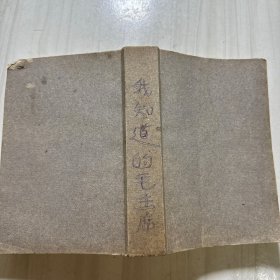 我知道的毛主席